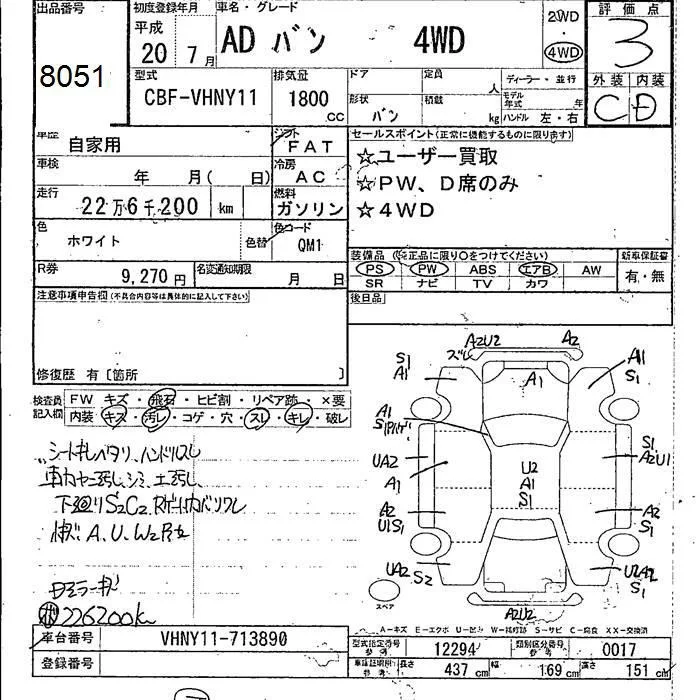 出品番号
8051
初度登録年月
平成
20 7月
車名・グレード
AD バン 4WD
2WD
・
4WD
評価点
3
外装 内装
C D
型式
CBF-VHNY11
排気量
1800
CC
ドア
定員 人
形状
バン
積載 kg
ディーラー・並行
モデル年式 年
ハンドル 左・右
車歴
自家用
シフト
FAT
車検
年 月( 日)
冷房
AC
走行
22万6千200 km
燃料
ガソリン
色
ホワイト
色替
色コード
QM1
R券
9,270円
名変通知期限
月 日
セールスポイント(正常に機能するものに限ります)
☆ユーザー買取
☆PW、D席のみ
☆4WD
装備品(純正品に限り○をつけてください)
PS PW ABS エアB AW
SR ナビ TV カワ
新車保証書
有・無
後日品
注意事項申告欄(不具合内容等は具体的に記入して下さい)
修復歴 有〔箇所 〕
検査員記入欄
FW キズ・飛石・ヒビ割・リペア跡・×要
内装 キズ・汚れ・コゲ・穴・スレ・キレ・破レ
シートキレヘタリ、ハンドルスレ
車内ヤニ汚レ、シミ、土汚レ
下廻りS2C2、Rゲート内バリワレ
A.U.W2
226200k
A2U2
ズレ
A2
S1
A1
A1
A1
S1
A1
S1
UA2
A1
U2
A1
S1
S1
A2U1
A2
U1S1
A2
S1
UA2
S2
U2A2
S1
スペア
A2U2
A―キズ E―エクボ U―凹ミ W―補修跡 S―サビ C―腐食 XX―交換済
車台番号
VHNY11-713890
登録番号
型式指定番号
参考
12294
類別区分番号
参考
0017
車庫証明用
参考
長さ 437 cm 幅 169 cm 高さ 151 cm